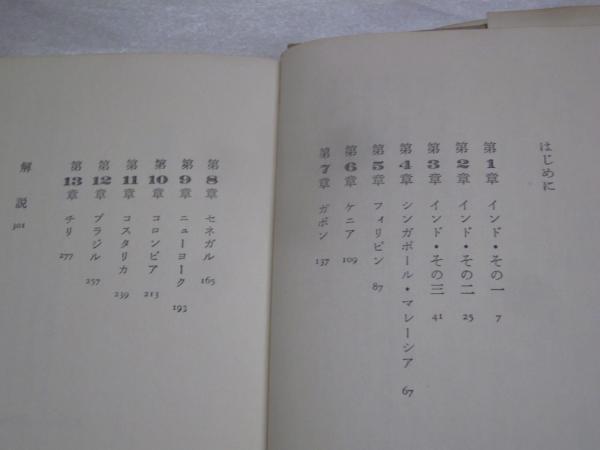 はじめに
第1章 インド・その一 7
第2章 インド・その二 25
第3章 インド・その三 41
第4章 シンガポール・マレーシア 67
第5章 フィリピン 87
第6章 ケニア 109
第7章 ガボン 137
第8章 セネガル 165
第9章 ニューヨーク 193
第10章 コロンビア 213
第11章 コスタリカ 239
第12章 ブラジル 257
第13章 チリ 277
解説 301